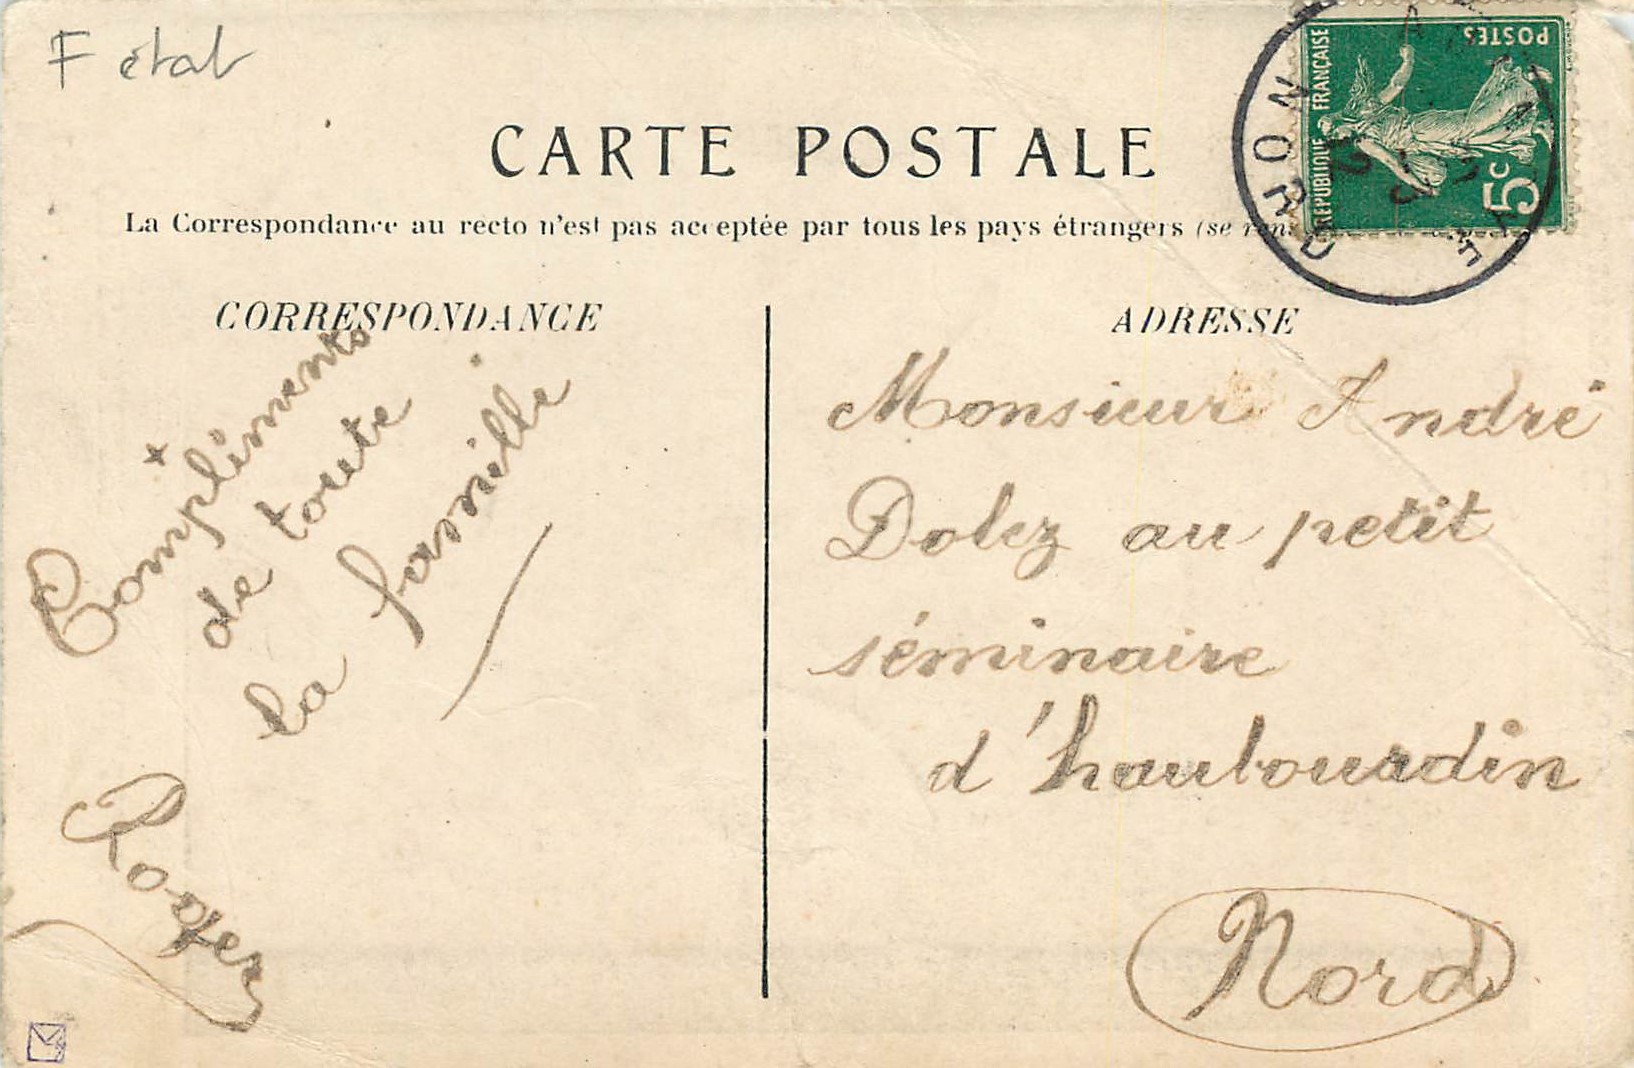 F état
CARTE POSTALE
La Correspondance au recto n'est pas acceptée par tous les pays étrangers (se
RÉPUBLIQUE FRANÇAISE
POSTES
5c
CORRESPONDANCE
Compliments
de toute
la famille
Roger
ADRESSE
Monsieur André
Dolez au petit
séminaire
d'haubourdin
Nord